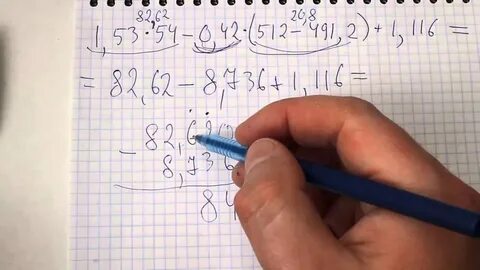 82,62 20,8
1,53·54-0,42·(512-491,2)+1,116=
=82,62-8,736+1,116=
-82,62
8,736
84